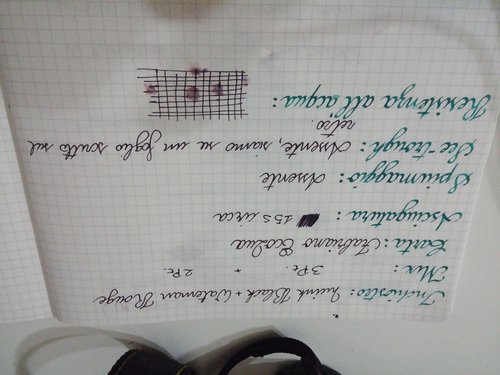 Inchiostro: Quink Black + Waterman Rouge
Mix: 3Pt. + 2Pt.
Carta: Fabriano EcoQua
Asciugatura: 15s circa
Spiumaggio: Assente
See trough: Assente, siamo su un foglio scritto sul
retro.
Resistenza all'acqua: